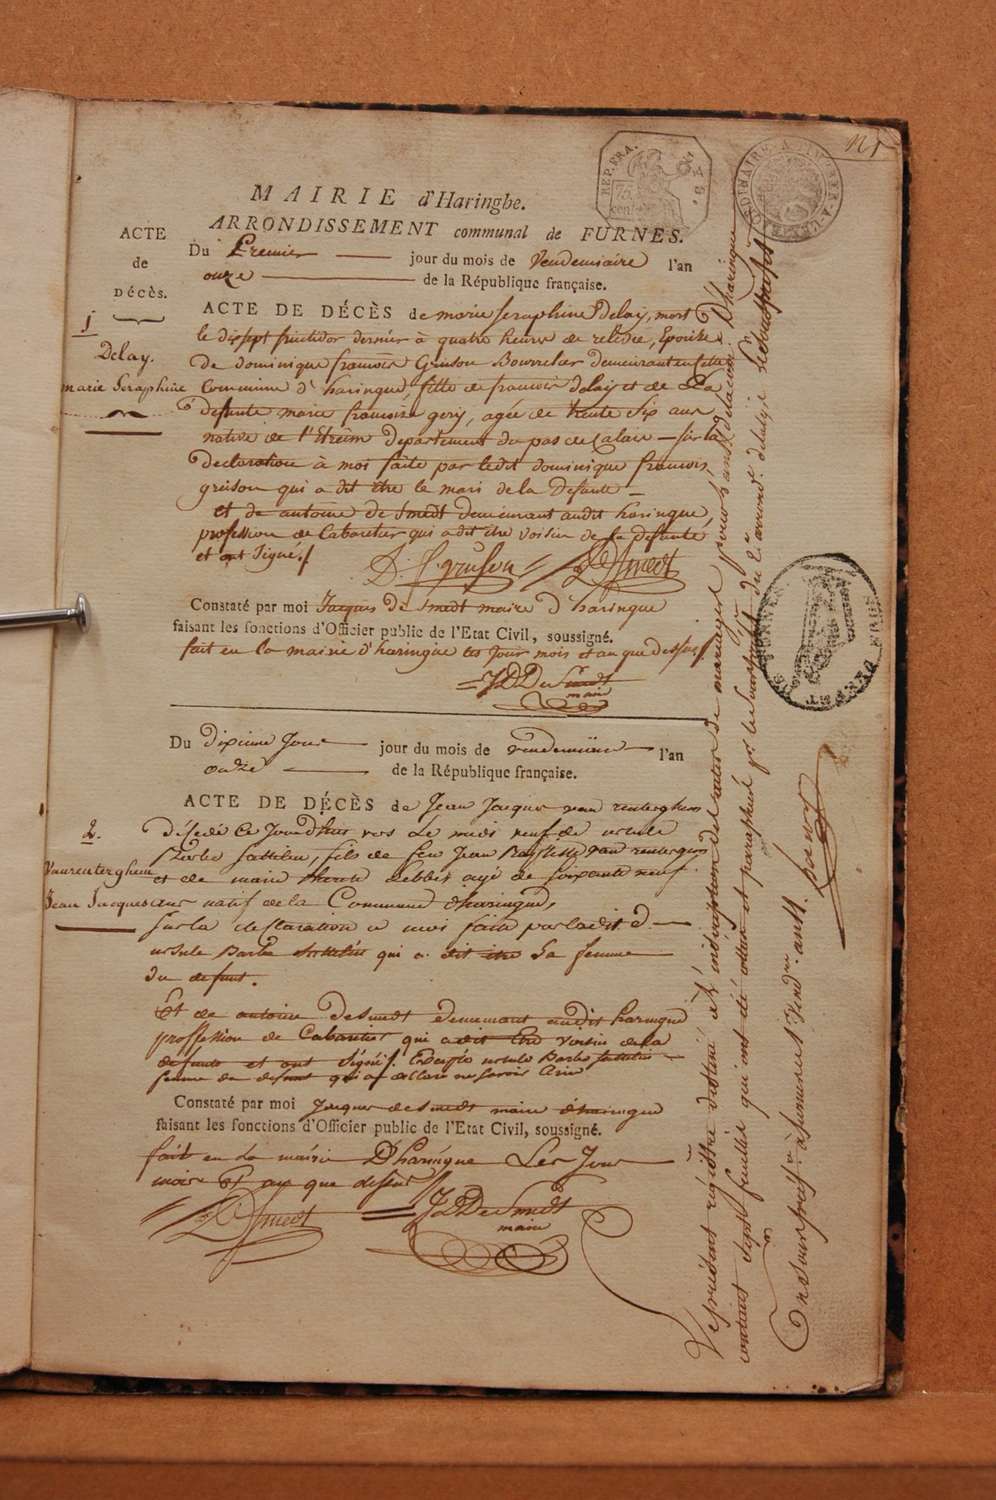 n 1
REP. FRA.
75 cent
MAIRIE d'Haringhe.
ARRONDISSEMENT communal de FURNES.
ACTE
de
DÉCÈS.
Du Premier jour du mois de Vendemiaire l'an
onze de la République française.
1
Delay.
marie Seraphine
ACTE DE DÉCÈS de marie seraphine Delay, mort
le dixsept fructidor dernier à quatre heures de relevée, Epouse
De dominique francois Gruson Bourrelier demeurant en cette
Commune d'haringue, fille de francois delay et de La
defunte marie francoise gery, agée de trente six ans
native de departement du pas de Calais — sur la
declaration à moi faite par ledit dominique francois
gruson qui a dit etre le mari de la defunte —
et de antoine de Smedt demeurant audit haringue,
profession de Cabaretier qui a dit etre voisin de la defunte
et ont signé./.
D. f. gruson A De Smedt
Constaté par moi Jacques De Smedt maire d'haringue
faisant les fonctions d'Officier public de l'Etat Civil, soussigné.
fait en la mairie d'haringue les jour mois et an que dessus./.
J D De Smedt
maire
Du dixieme Jour jour du mois de vendemiaire l'an
onze de la République française.
2.
Vanrenterghem
Jean Jacques
ACTE DE DÉCÈS de Jean Jacques van renterghem
décédé ce Jourdhui vers Le midi veuf de ursule
Barbe fils de feu Jean Baptiste van renterghem
et de marie debbes agé de soixante neuf
ans natif de la Commune d'haringue,
sur la declaration a moi faite par ladite —
ursule Barbe qui a dit etre La femme
du defunt.
Et de antoine deSmedt demeurant audit haringue
proffession de Cabaretier qui a dit Etre voisin de la
defunte et ont signé ./. Excepté ursule Barbe
femme du defunt qui a declaré ne savoir Ecrire
Constaté par moi Jacques de Smedt maire d'haringue
faisant les fonctions d'Officier public de l'Etat Civil, soussigné.
fait en La mairie D'haringue Les Jour
mois Et an que dessus
A De Smedt J D De Smedt
maire
Le présent registre destiné à l'inscription des actes de mariages pour l'an de la commune D'haringue
contenant sept feuillets qui ont été cottés et paraphés par le sousprefet du arrond. délégé